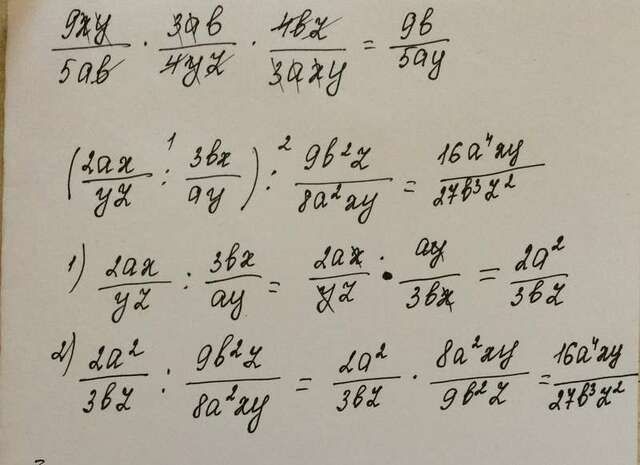 9xy/5ab · 3ab/4yz · 4bz/3axy = 9b/5ay
(2ax/yz :¹ 3bx/ay) :² 9b²z/8a²xy = 16a⁴xy/27b³z²
1) 2ax/yz : 3bx/ay = 2ax/yz · ay/3bx = 2a²/3bz
2) 2a²/3bz : 9b²z/8a²xy = 2a²/3bz · 8a²xy/9b²z = 16a⁴xy/27b³z²